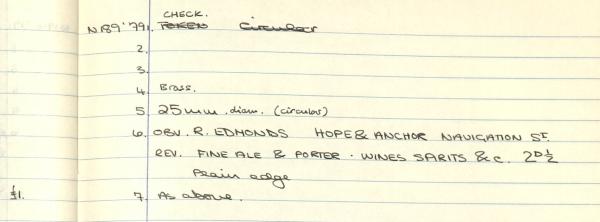 CHECK.
N189 '79 1. TOKEN Circular
2.
3.
4. Brass.
5 25mm. diam. (circular)
6. OBV. R. EDMONDS HOPE & ANCHOR NAVIGATION ST.
REV. FINE ALE & PORTER · WINES SPIRITS &c. 2D½
Plain edge
£1. 7. As above.